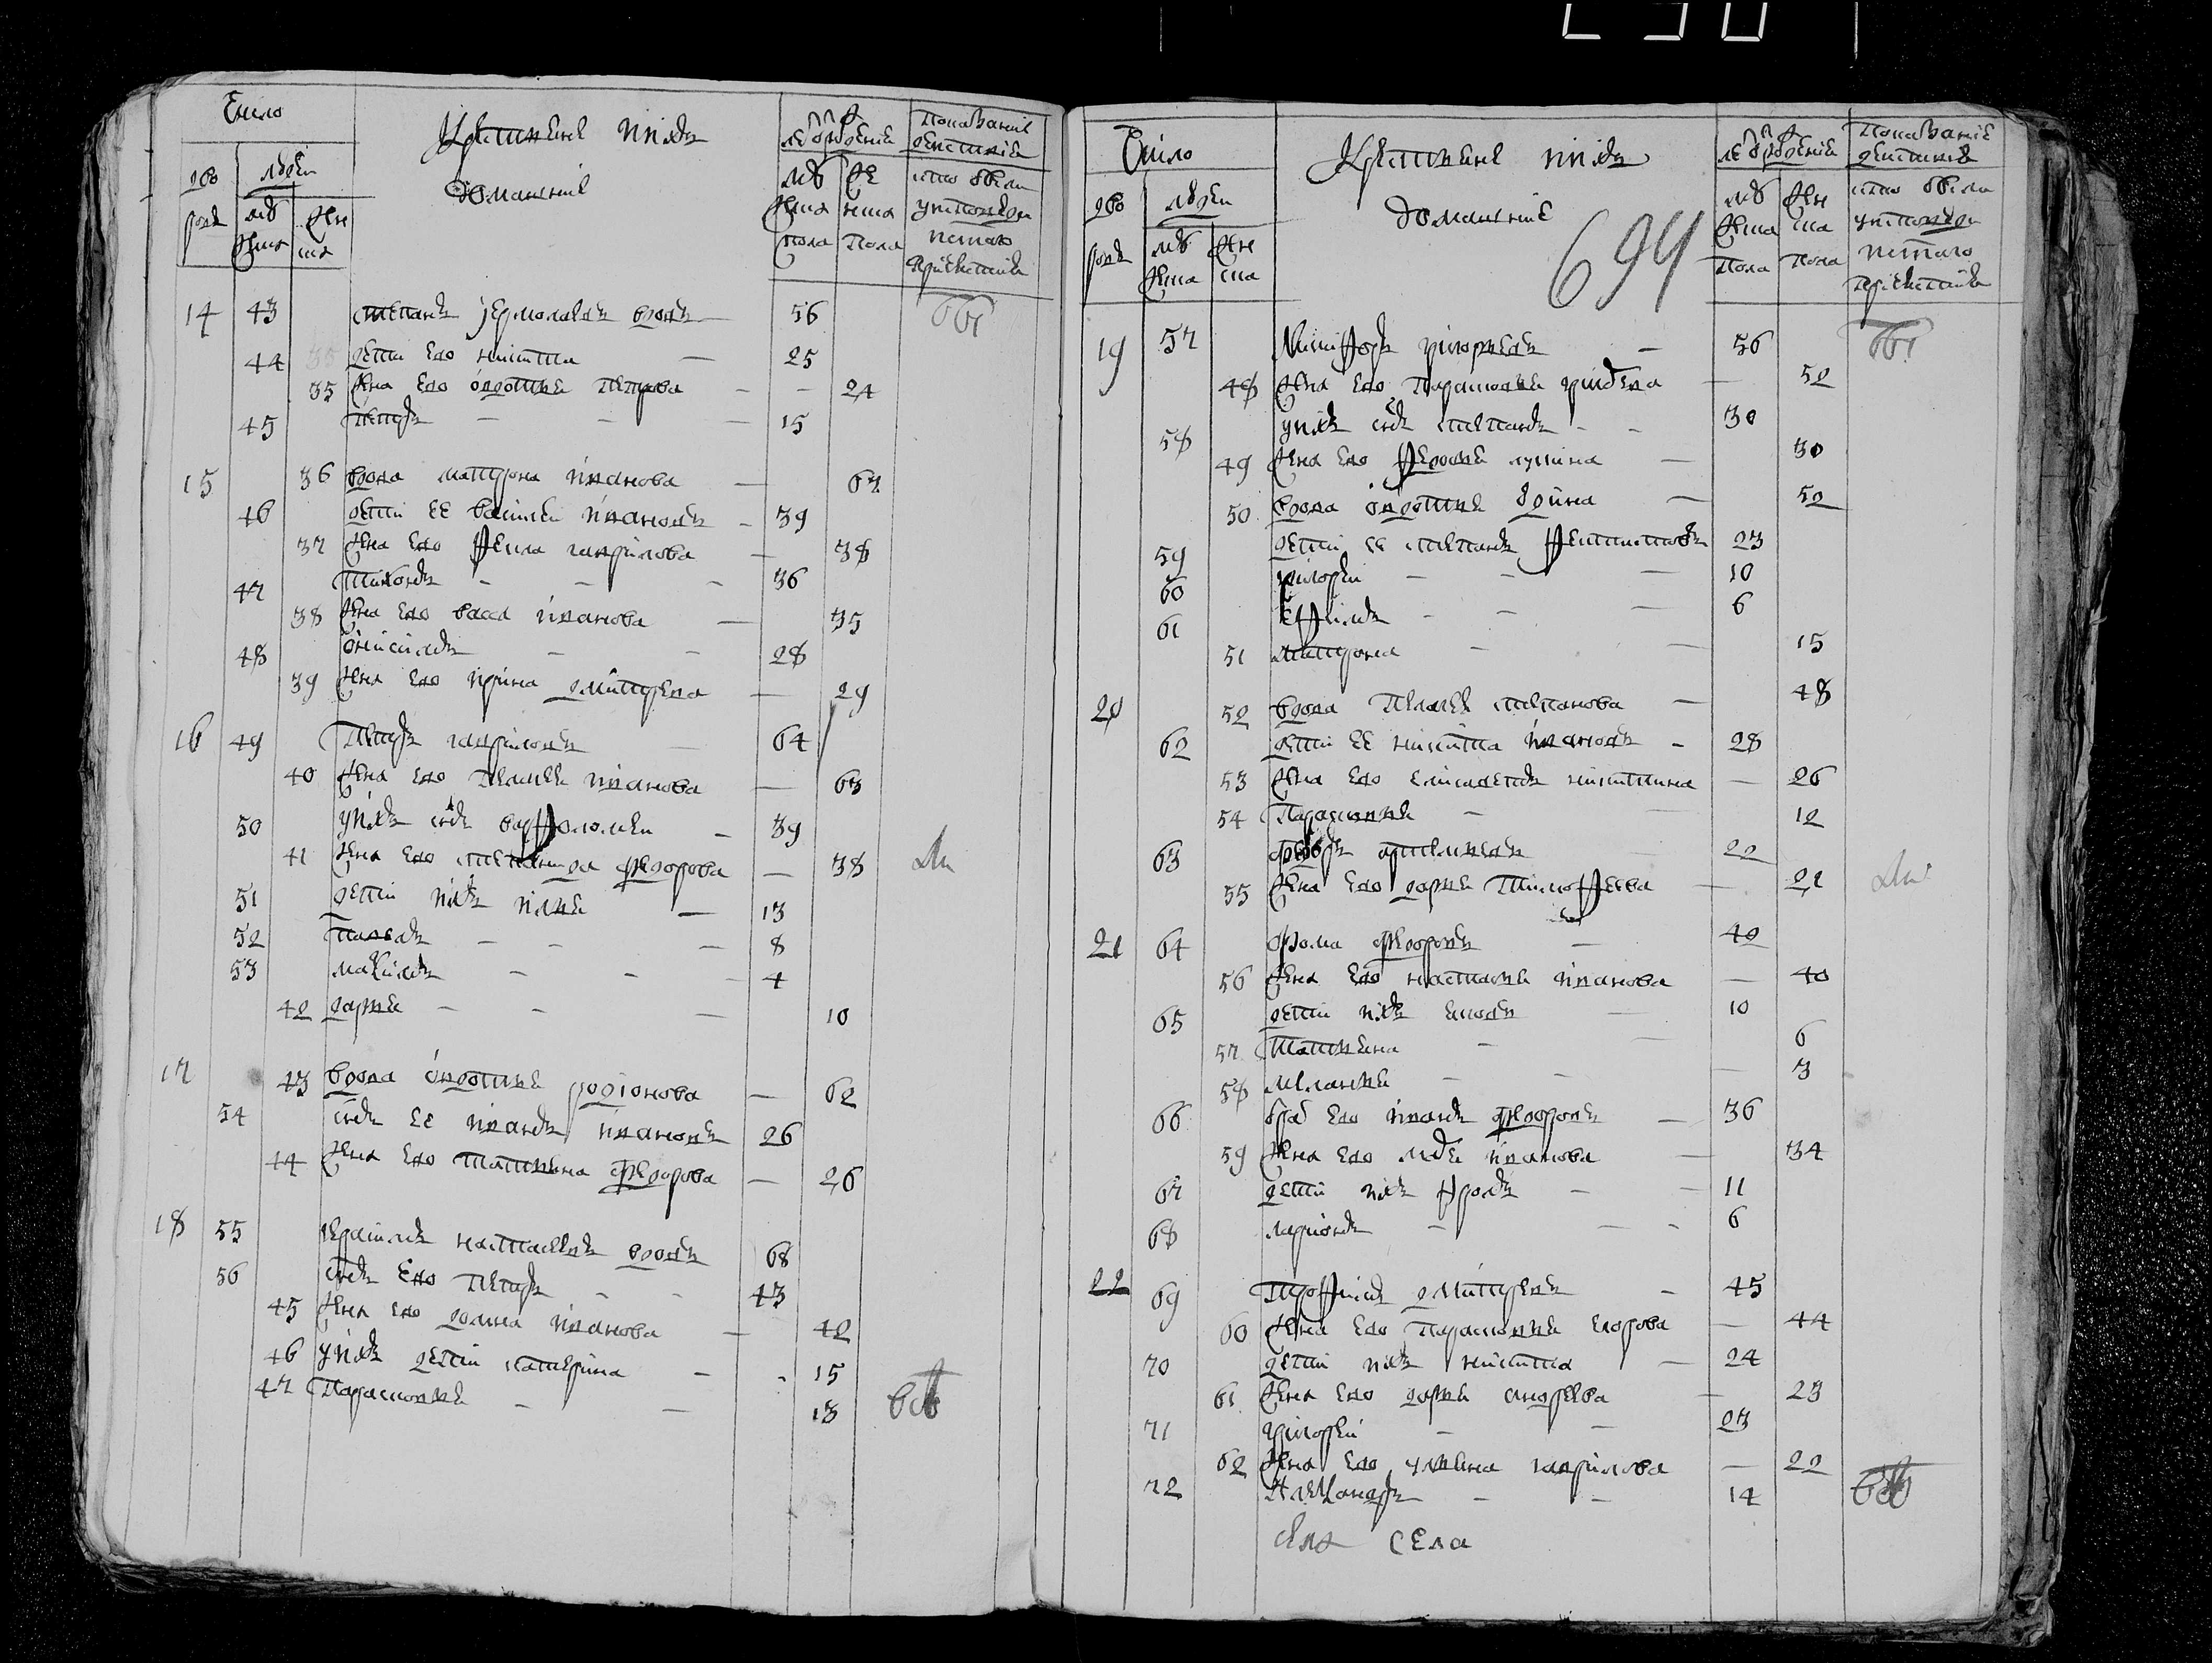 Число
Крестьяне и ихъ
домашние
лѣ от рождения
Показание
действия
кто были
у исповеди
и с того
причастия
дво
ровъ
людей
му
жска
жен
ска
му
жска
пола
же
нска
пола
14 43 степанъ ермолаевъ вдовъ — 56 бы
44 35 дети его никита — 25
35 жена его авдотья петрова — — 24
45 петръ — — — 15
15 36 вдова матрона иванова — 67
46 дети ее василей ивановъ — 39
37 жена его фекла гаврилова — 38
47 тихонъ — — — 36
38 жена его васса иванова — 35
48 онисимъ — — 28
39 жена его ирина дмитрева — 29
16 49 петръ гавриловъ — 64
40 жена его пелагея иванова — 63
50 у ихъ снъ варфоломей — 39
41 жена его степанида федорова — 38 ли
51 дети ихъ илья — 13
52 павелъ — — — 8
53 максимъ — — — 4
42 дарья — — — 10
17 43 вдова авдотья родионова — 62
54 снъ ее иванъ ивановъ 26
44 жена его татьяна федорова — 26
18 55 герасимъ настасеевъ вдовъ 68
56 снъ его петръ — — 43
45 жена его домна иванова — 42
46 у ихъ дети катерина — - 15
47 парасковья — — 13 всѣ
Число
Крестьяне и ихъ
домашние
694
лѣ от рождения
Показание
действия
кто были
у исповеди
и с того
причастия
дво
ровъ
людей
му
жска
жен
ска
му
жска
пола
жен
ска
пола
19 57 никифоръ григорьевъ — 56 бы
48 жена его парасковья гридева — 52
58 у ихъ снъ степанъ - - 30
49 жена его федосья лукина — 30
50 вдова авдотья — 52
59 дети ее степанъ феклистовъ 23
60 григорей — — — 10
61 ефимъ — — — 6
51 матрона — — 15
20 52 вдова пелагея степанова — 48
62 дети ее никита ивановъ - 28
53 жена его елисаветъ никитина — 26
54 парасковья — — 12
63 федоръ артемьевъ 22
55 жена его дарья тимофеева — 21 ли
21 64 фома федоровъ — 40
56 жена его настасья иванова — 40
65 дети ихъ — 10
57 татьяна — — 6
58 меланья — — — 3
66 братъ его иванъ федоровъ — 36
59 жена его иванова — 34
67 дети ихъ фролъ — — 11
68 ларионъ — — - 6
22 69 трофимъ дмитревъ - 45
60 жена его парасковья егорова — 44
70 дети ихъ никита — 24
61 жена его дарья андреева — 23
71 григорей — — 23
62 жена его ульяна гаврилова — 22
72 александръ — — 14 всѣ
села